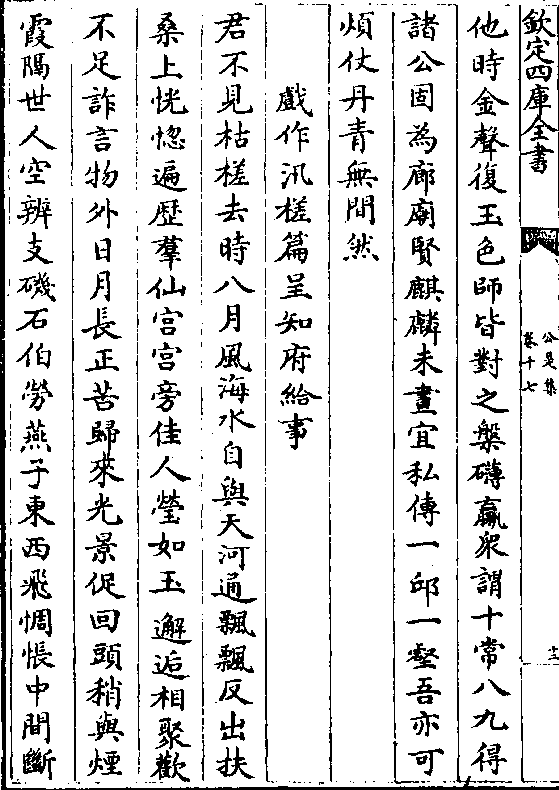 欽定四庫全書
公是集
卷十七
十二
他時金聲復玉色師皆對之槃礴臝衆謂十常八九得
諸公固為廊廟賢麒麟未畫宜私傳一邱一壑吾亦可
煩仗丹青無間然
戲作汎槎篇呈知府給事
君不見枯槎去時八月風海水自與天河通飄飄反出扶
桑上恍惚遍歴羣仙宫宫旁佳人瑩如玉邂逅相聚歡
不足詐言物外日月長正苦歸來光景促回頭稍與煙
霞隔世人空辨支磯石伯勞燕子東西飛惆悵中間斷